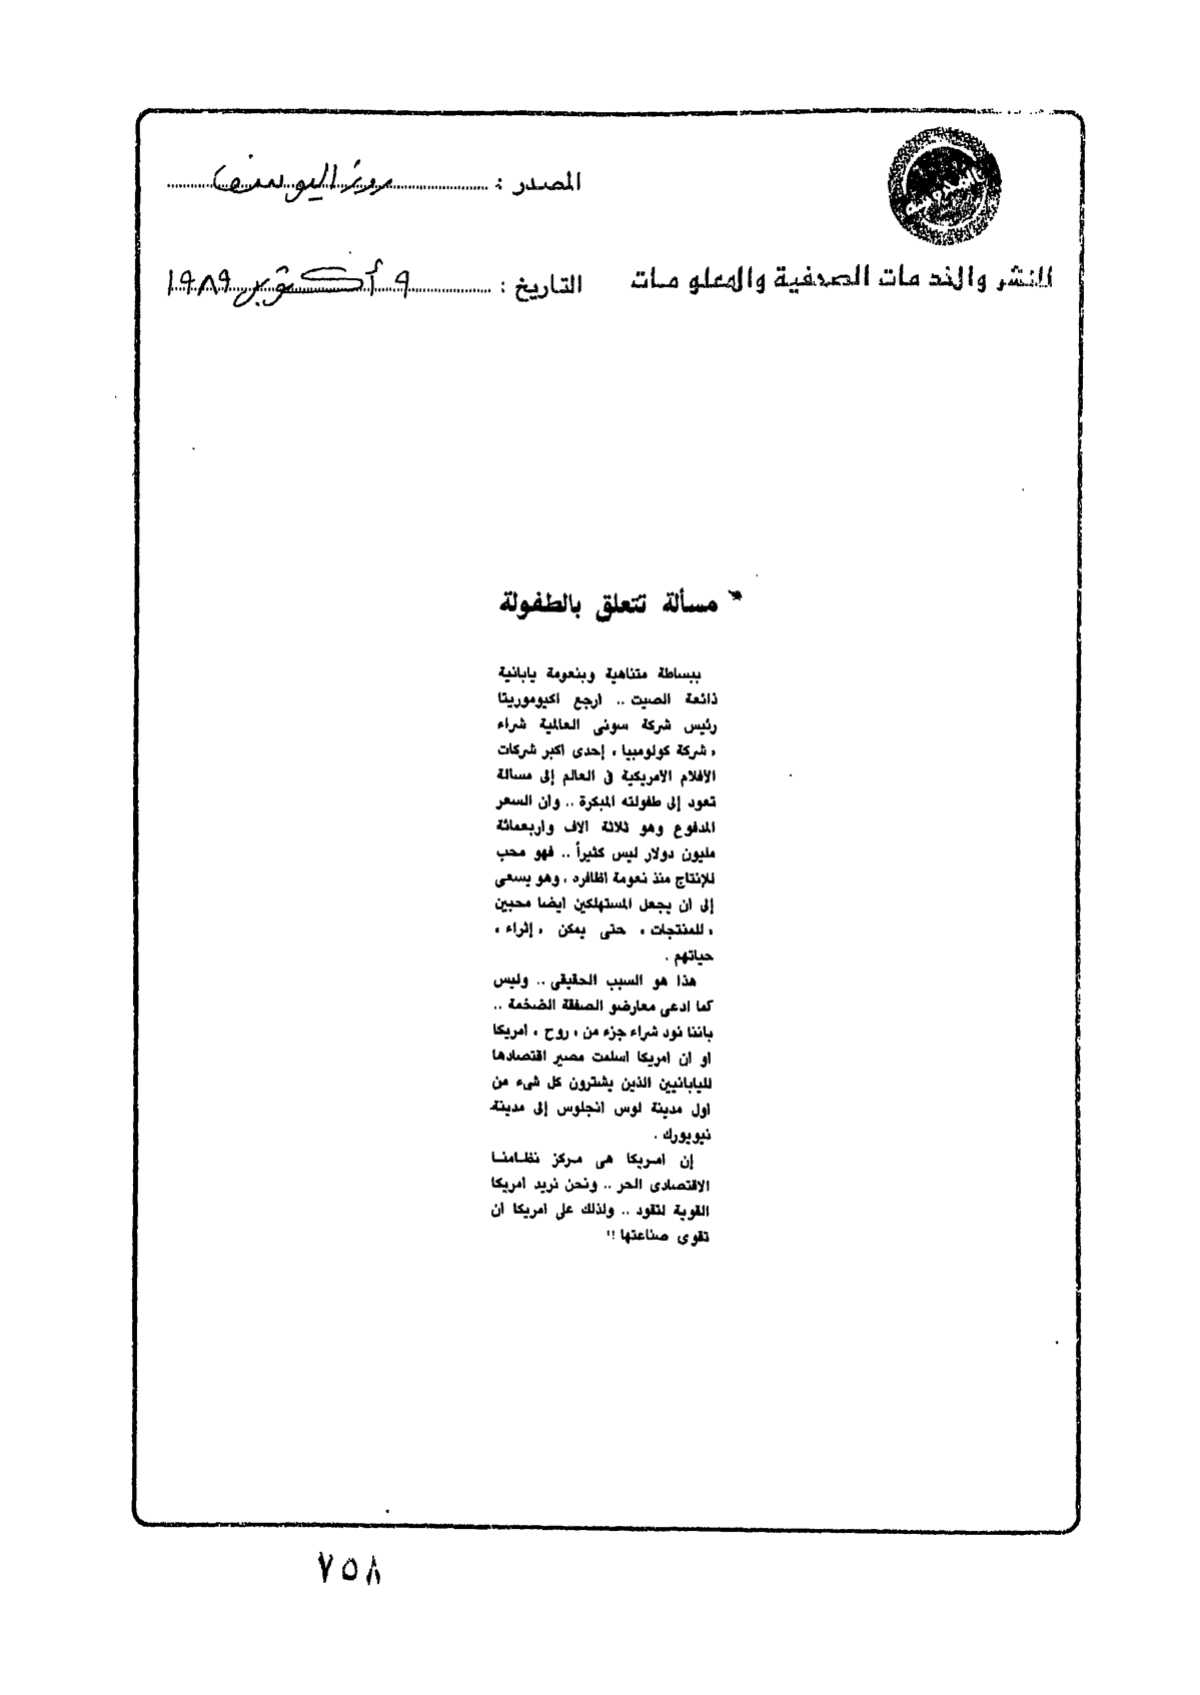 المصدر : روز اليوسف
للنشر والخدمات الصحفية والمعلومات
التاريخ : ٩ أكتوبر ١٩٨٩
* مسألة تتعلق بالطفولة
ببساطة متناهية وبنعومة يابانية
ذائعة الصيت .. ارجع اكيوموريتا
رئيس شركة سونى العالمية شراء
، شركة كولومبيا ، إحدى اكبر شركات
الافلام الامريكية فى العالم إلى مسالة
تعود إلى طفولته المبكرة .. وان السعر
المدفوع وهو ثلاثة الاف واربعمائة
مليون دولار ليس كثيراً .. فهو محب
للإنتاج منذ نعومة اظافره ، وهو يسعى
إلى ان يجعل المستهلكين ايضا محبين
، للمنتجات ، حتى يمكن ، إثراء ،
حياتهم .
هذا هو السبب الحقيقى .. وليس
كما ادعى معارضو الصفقة الضخمة ..
باننا نود شراء جزء من ، روح ، امريكا
او ان امريكا اسلمت مصير اقتصادها
لليابانيين الذين يشترون كل شىء من
اول مدينة لوس انجلوس إلى مدينة
نيويورك .
إن امريكا هى مركز نظامنا
الاقتصادى الحر .. ونحن نريد امريكا
القوية لتقود .. ولذلك على امريكا ان
تقوى صناعتها !!
٧٥٨